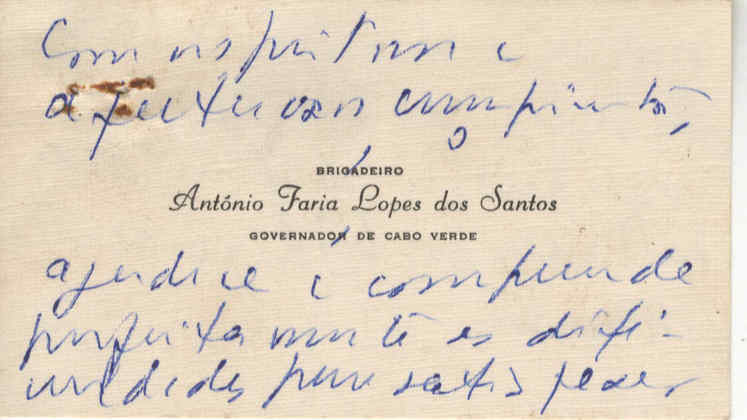 Com os respeitosos e
afectuosos cumprimentos,
BRIGADEIRO
António Faria Lopes dos Santos
GOVERNADOR DE CABO VERDE
agradece e compreende
perfeitamente as difi-
culdades para satisfazer